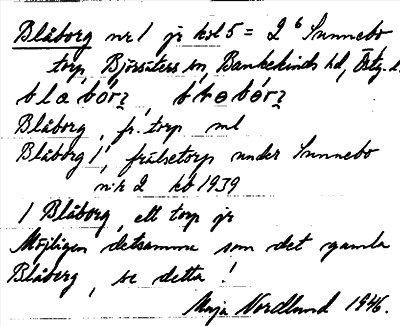 Blåborg nr 1 jr kbl 5 = 2 6 Sunnebo
torp, Björsäters sn, Bankekinds hd, Östg. l.
Blåborg, fr. torp ml
Blåborg 1, frälsetorp under Sunnebo
nr 2 kb 1939
1 Blåborg, ett torp jr
Möjligen detsamma som det gamla
Blåberg, se detta!
Maja Nordlund 1946.